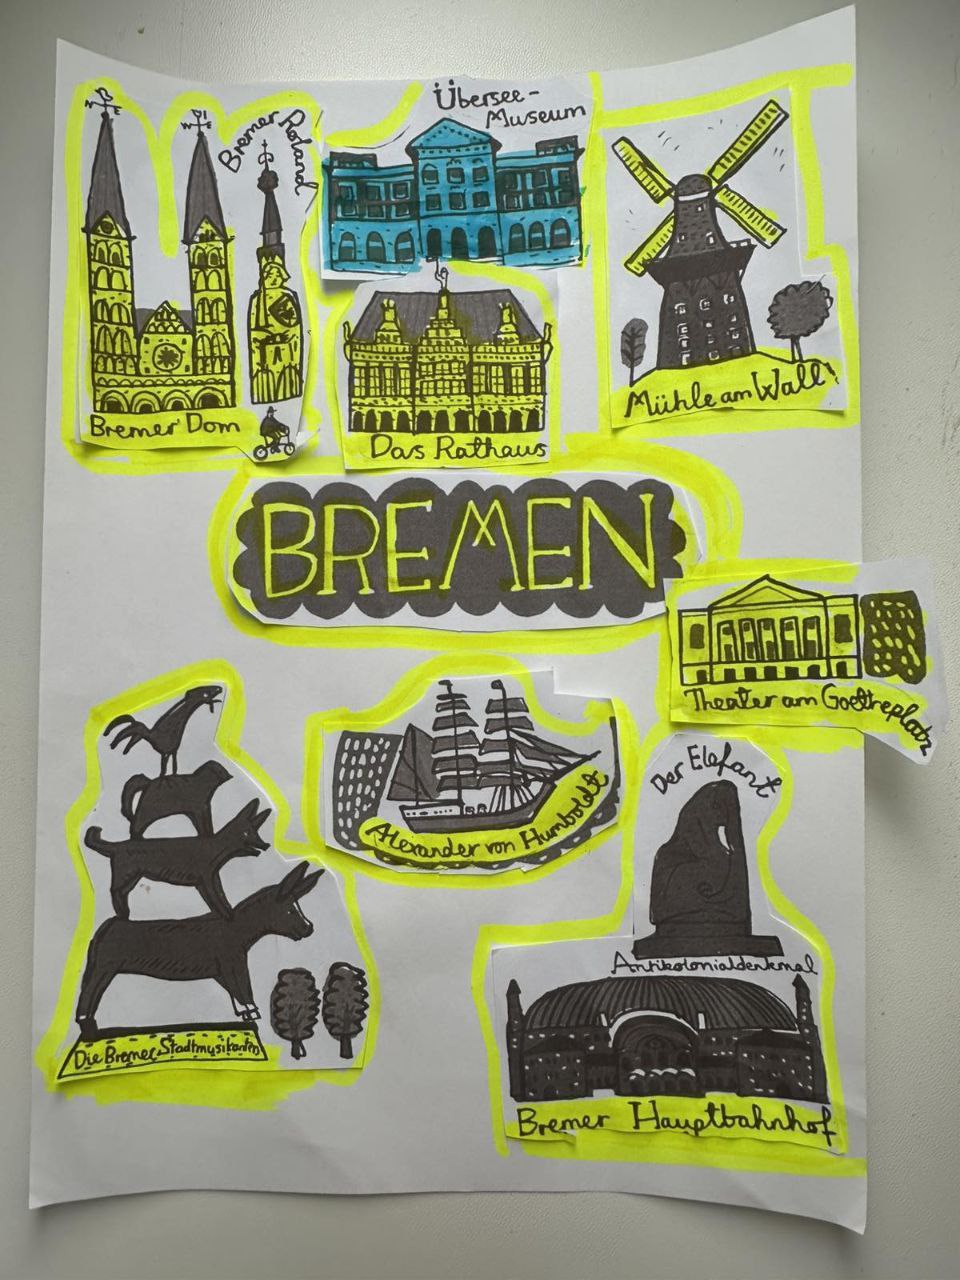 Übersee-
Museum
Bremer Roland
Bremer Dom
Das Rathaus
Mühle am Wall
BREMEN
Theater am Goetheplatz
Alexander von Humboldt
Der Elefant
Antikolonialdenkmal
Die Bremer Stadtmusikanten
Bremer Hauptbahnhof